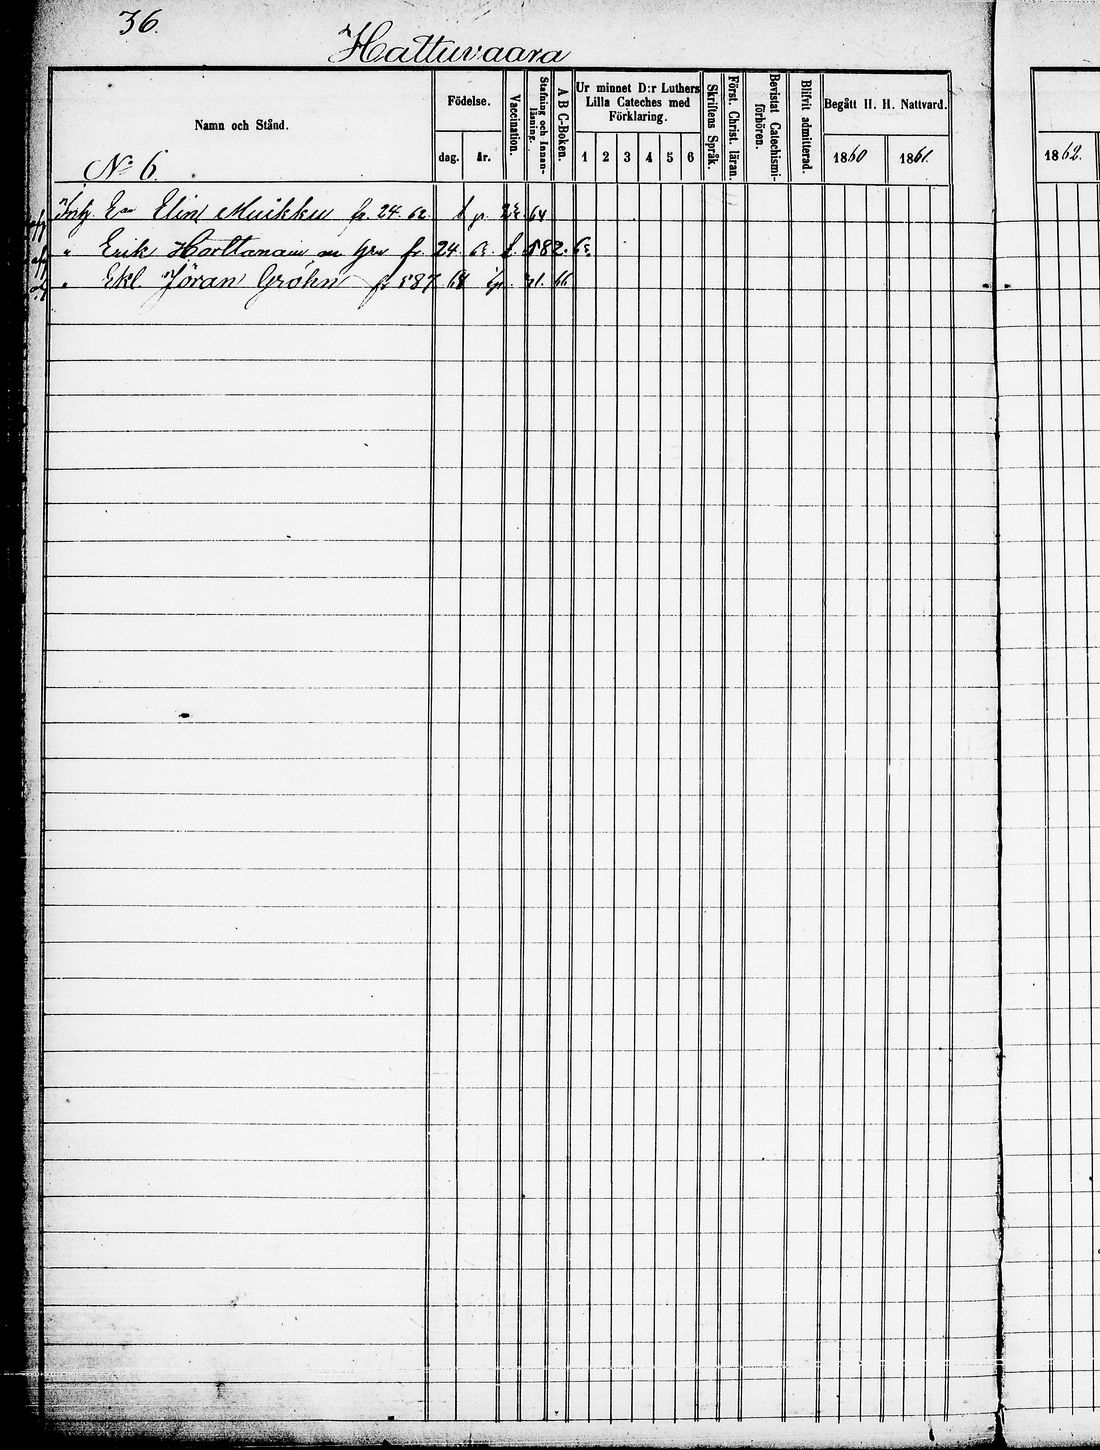 36.
Hattuvaara
Namn och Stånd.
Födelse.
dag. år.
Vaccination.
Stafning och Innanläsning.
A B C-Boken.
Ur minnet D:r Luthers
Lilla Cateches med
Förklaring.
1 2 3 4 5 6
Skriftens Språk.
Först. Christ. läran.
Bevistat Catechismiförhören.
Blifvit admitterad.
Begått H. H. Nattvard.
1860 1861.
1862.
No 6.
Elin Muikku fr. 24. 62. 64
" Erik Harttonain fr. 24 582.
" Ekl. Jöran Gröhn 587 66